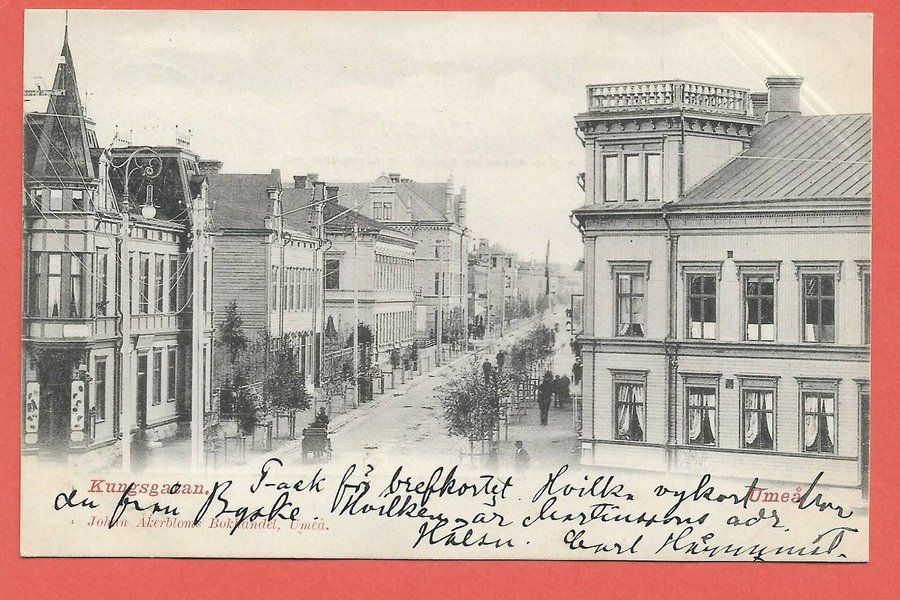 Kungsgatan.
Umeå
Tack fö brefkortet. Hvilka vykort har
du från Byske. Hvilken är Martinssons adr.
Johan Åkerbloms Bokhandel, Umeå.
Hälsn. Carl